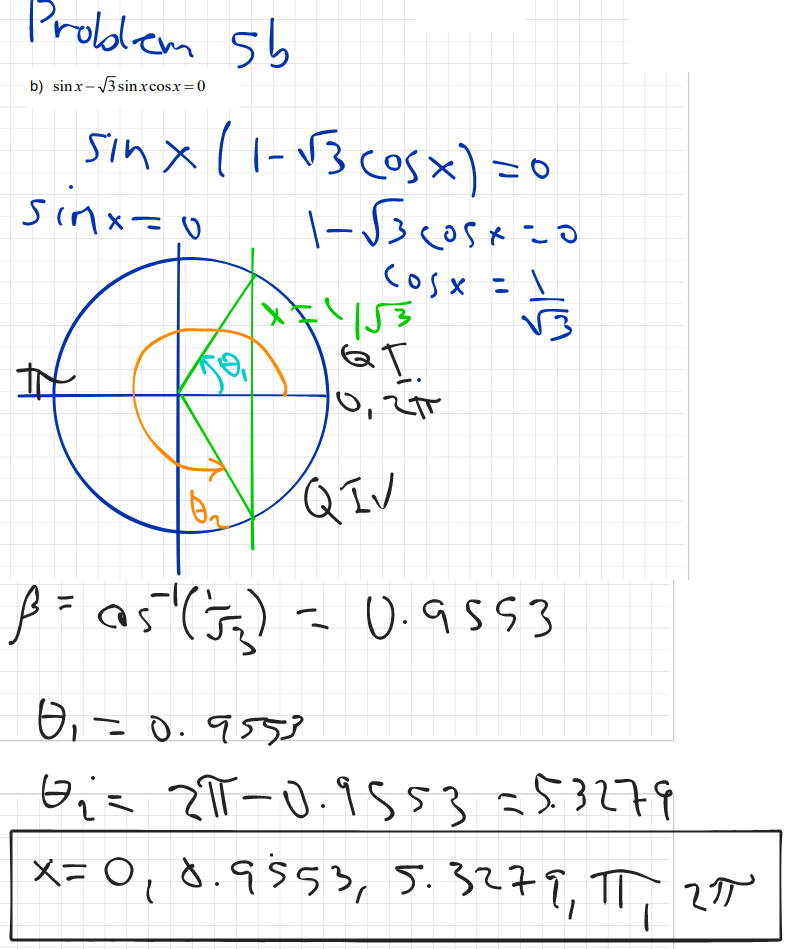 Problem 5b
b) sin x − √3 sin x cos x = 0
sin x (1 - √3 cos x) = 0
sin x = 0
1 - √3 cos x = 0
cos x = 1/√3
x = 1/√3
θ₁
Q I
π
0, 2π
θ₂
Q IV
β = cos⁻¹(1/√3) = 0.9553
θ₁ = 0.9553
θ₂ = 2π - 0.9553 = 5.3279
x = 0, 0.9553, 5.3279, π, 2π